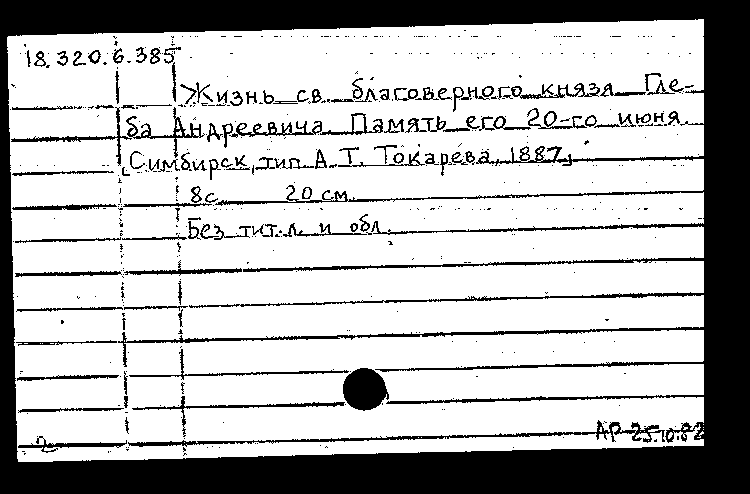 18.320.6.385
Жизнь св. благоверного князя Гле-
ба Андреевича. Память его 20-го июня.
[Симбирск, тип. А. Т. Токарева, 1887]
8с. 20 см.
Без тит.л. и обл.
2
АР 25.10.82